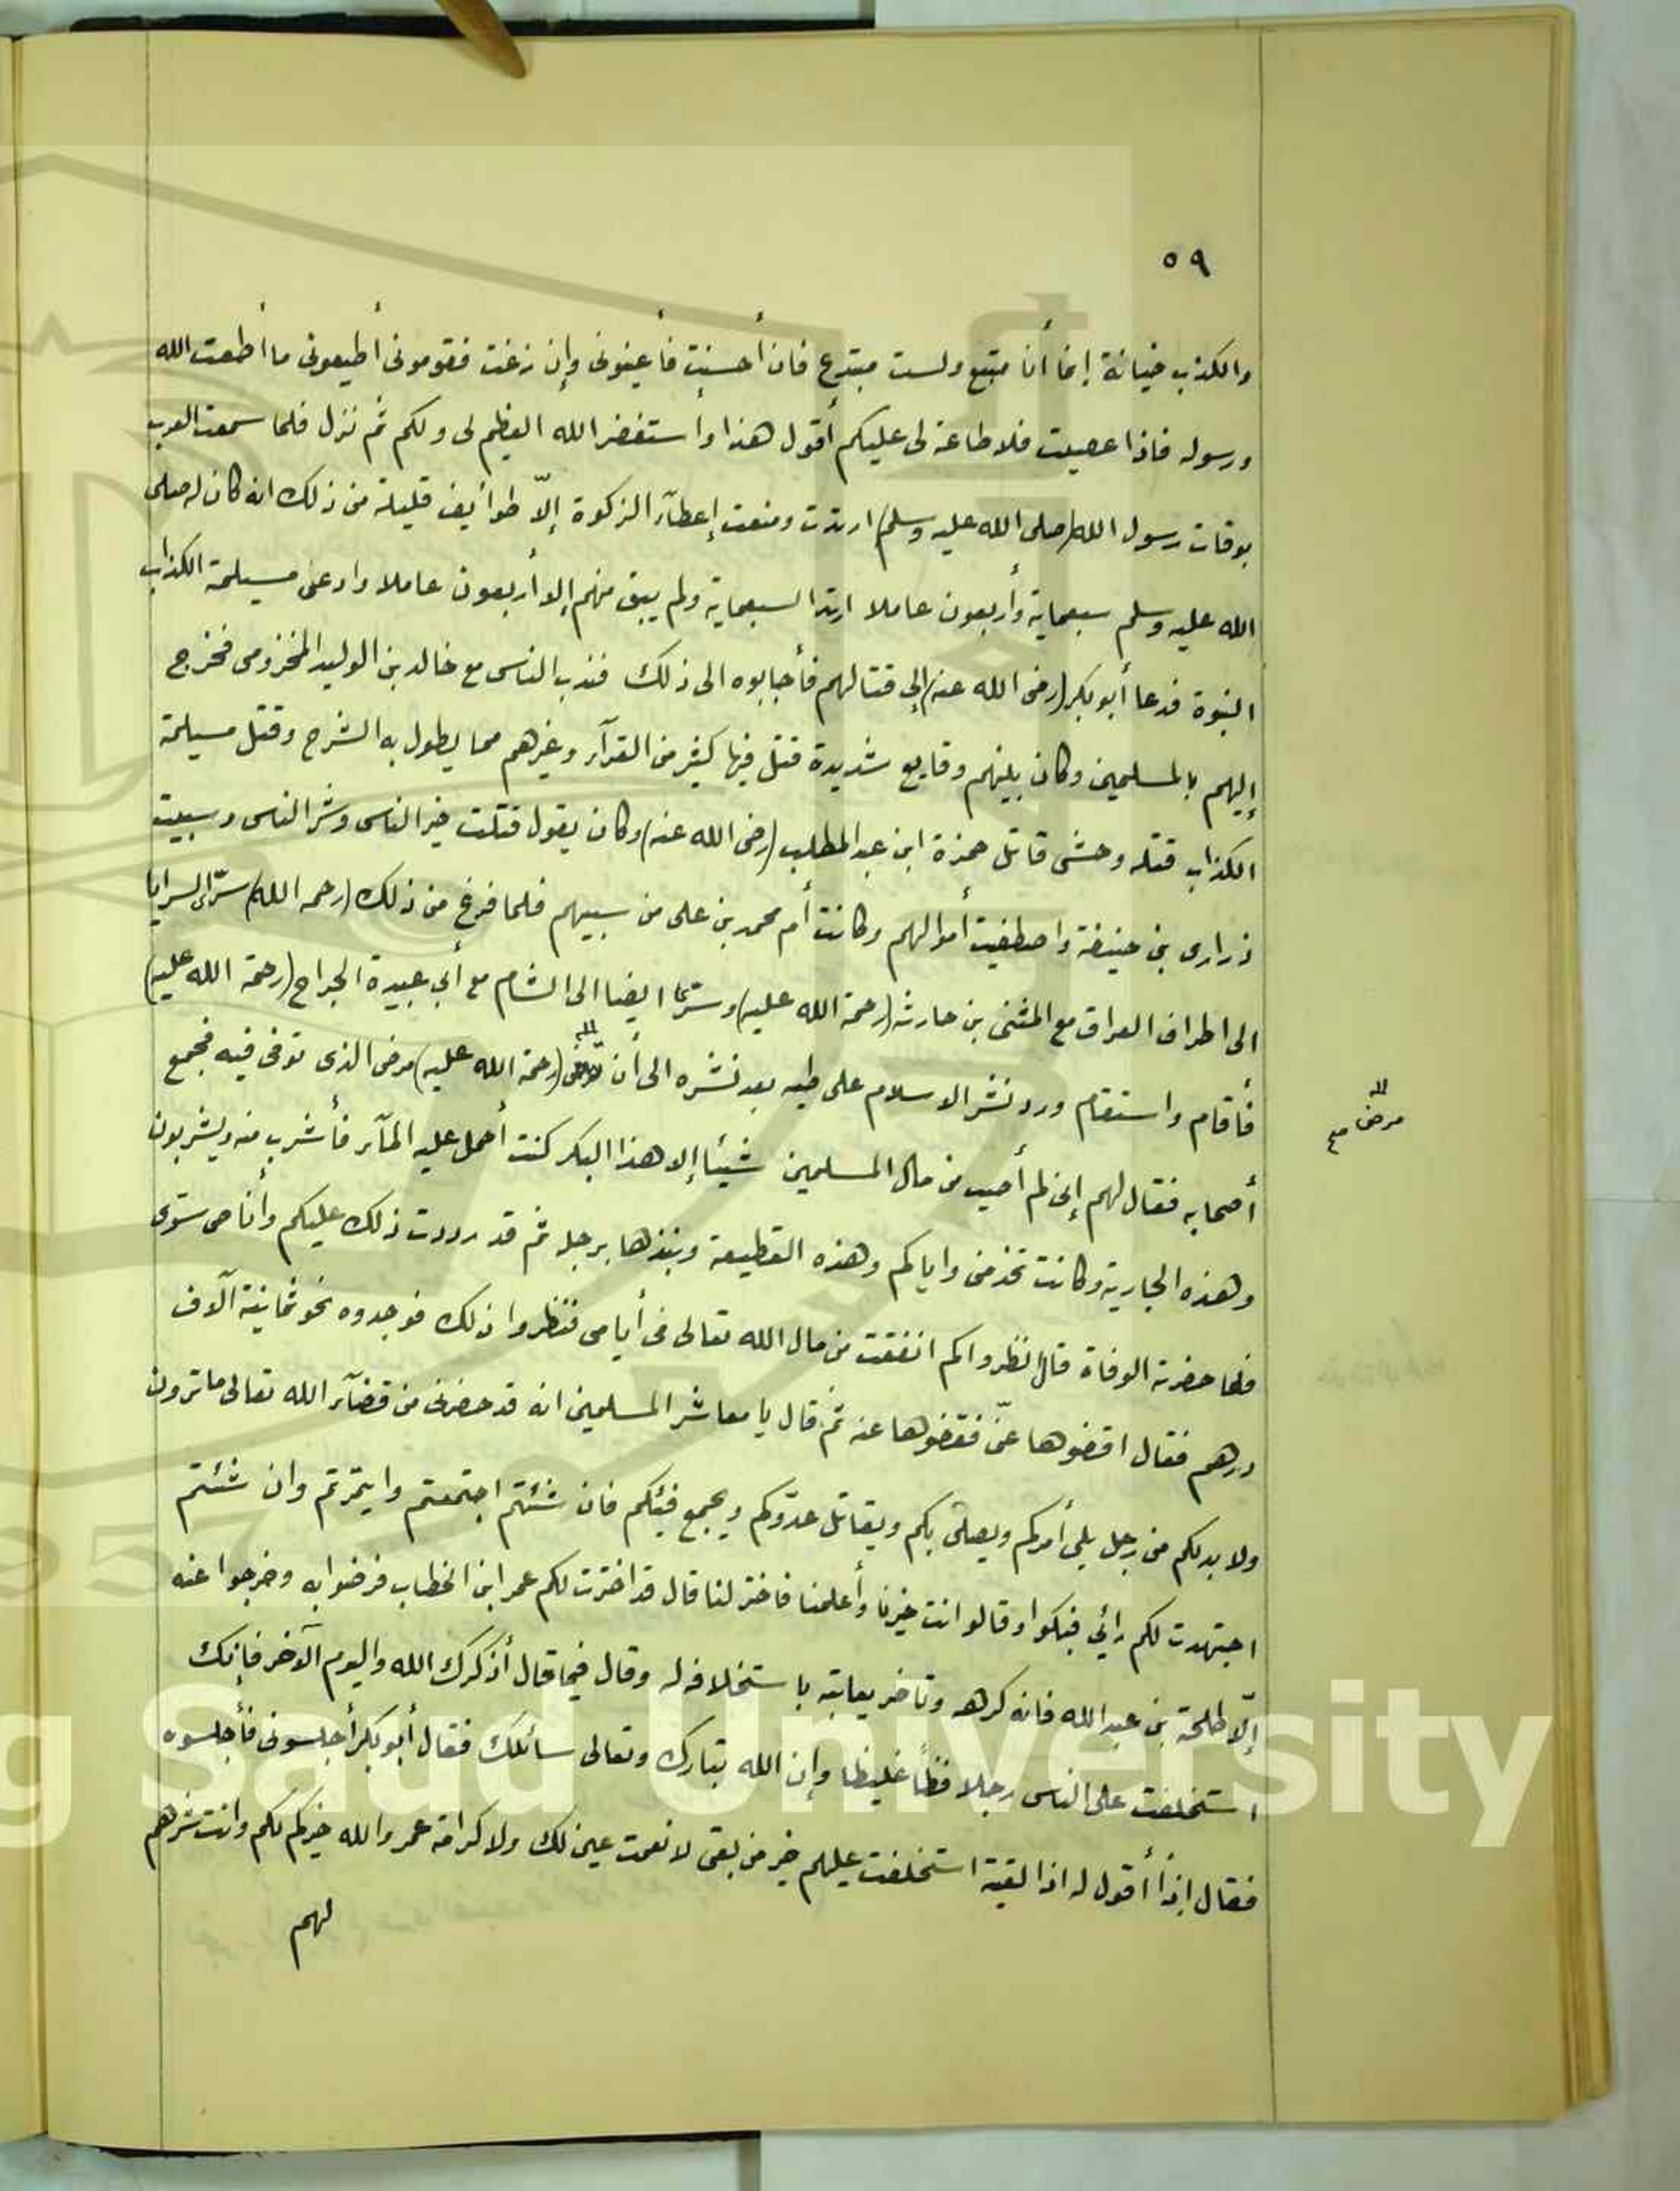 ٥٩
والكذب خيانة إنما أنا متبع ولست مبتدع فان أحسنت فأعينونى وإن زغت فقومونى أطيعونى ما أطعت الله
ورسوله فاذا عصيت فلا طاعة لى عليكم أقول هذا وأستغفر الله العظيم لى ولكم ثم نزل فلما سمعت العرب
بوفات رسول الله (صلى الله عليه وسلم) ارتدت ومنعت إعطآء الزكوة إلاّ طوايف قليلة من ذلك انه كان له صلى
الله عليه وسلم سبعماية وأربعون عاملا ارتدا السبعماية ولم يبق منهم إلا أربعون عاملا وادعى مسيلمة الكذاب
النبوة فدعا أبو بكر (رضى الله عنه) إلى قتالهم فأجابوه الى ذلك فندب الناس مع خالد بن الوليد المخزومى فخرج
إليهم بالمسلمين وكان بينهم وقايع شديدة قتل فيها كثير من القرآء وغيرهم مما يطول به الشرح وقتل مسيلمة
الكذاب قتله وحشى قاتل حمزة ابن عبد المطلب (رضى الله عنه) وكان يقول قتلت خير الناس وشر الناس وسبيت
ذرارى بنى حنيفة واصطفيت أموالهم وكانت أم محمد بن على من سبيهم فلما فرغ من ذلك (رحمه الله) سرّى السرايا
الى اطراف العراق مع المثنى بن حارثه (رحمة الله عليه) وسرّى ايضا الى الشام مع أبي عبيدة الجراح (رحمة الله عليه)
فأقام واستقام ورد نشر الاسلام على طيه بعد نشره الى أن (رحمة الله عليه) مرض الذى توفى فيه فجمع
مرض صح
أصحابه فقال لهم إنى لم أصيب من مال المسلمين شيئا إلا هذا البكر كنت أحمل عليه المآء فأشرب منه ويشربون
وهذه الجارية وكانت تخدمنى واياكم وهذه القطيعة ونبذها برجله ثم قد رددت ذلك عليكم وأنا
فلما حضرته الوفاة قال انظروا كم انفقت من مال الله تعالى فى أيامى فنظروا ذلك فوجدوه نحو ثمانية آلاف
درهم فقال اقضوها عنّى فقضوها عنه ثم قال يا معاشر المسلمين انه قد حضرنى من قضآء الله تعالى ما ترون
ولا بد لكم من رجل يلى أمركم ويصلى بكم ويقاتل عدوّكم ويجمع فيئكم فان شئتم اجتمعتم وايتمرتم وان شئتم
اجتهدت لكم رائي فبكوا وقالوا انت خيرنا وأعلمنا فاختر لنا قال قد اخترت لكم عمر ابن الخطاب فرضوا به وخرجوا عنه
إلاّ طلحة بن عبد الله فانه كرهه وتاخر يعاتبه باستخلافه له وقال فيما قال أذكرك الله واليوم الآخر فإنك
استخلفت على الناس رجلا فظاً غليظا وإن الله تبارك وتعالى سائلك فقال أبو بكر أجلسونى فأجلسوه
فقال إذاً أقول له اذا لقيته استخلفت عليهم خير من بقى لا نعمت عين لك ولا كرامة عمر والله خيركم لكم وانت شرهم
لهم
King Saud University